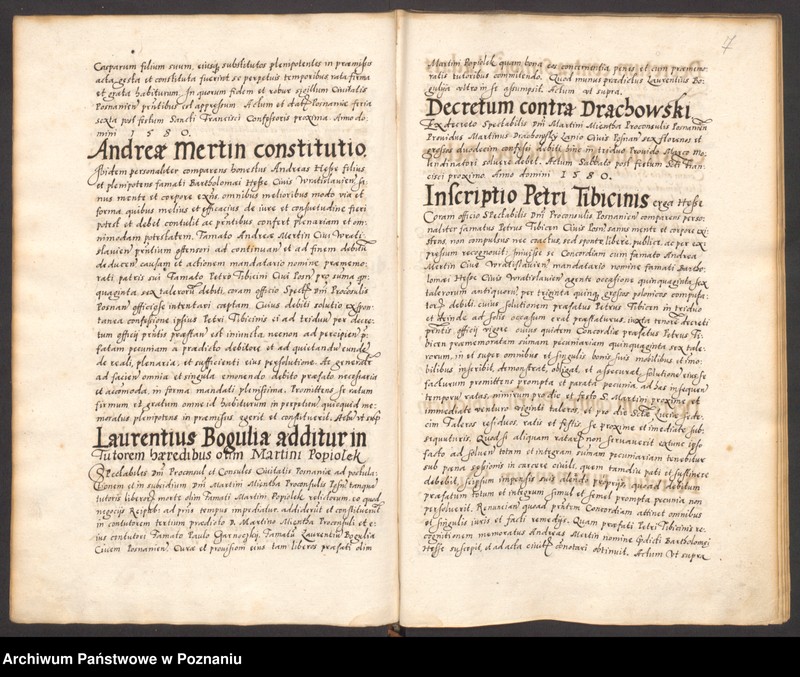 Casparum filium suum, eiusq; substitutos plenipotentes in præmissis
acta gesta et constituta fuerint se perpetuis temporibus rata firma
et grata habiturum. In quorum fidem et robur sigillum Civitatis
Posnanien p̃ntibus est appressum. Actum et datũ Posnaniæ feria
sexta post festum Sancti Francisci Confessoris proxima. Anno do:
mini 1580.
Andreæ Mertin constitutio.
Ibidem personaliter comparens honestus Andreas Hesse filius
et plenipotens famati Bartholomæi Hesse Civis Wratislavien sa:
nus mente et corpore exñs omnibus melioribus modo via et
forma quibus melius et efficacius de iure et consuetudine fieri
potest et debet contulit ac p̃ntibus confert plenariam et om:
nimodam potestatem. Famato Andreæ Mertin Civi Wrati:
slavien p̃ntium ostensori ad continuan et ad finem debitũ
deducen causam et actionem mandatario nomine præmemo:
rati patris sui Famato Petro Tibicini Civi Posn pro suma qn:
quaginta sex talerorũ debiti, coram officio Spectĩ Dni Proconsulis
Posnan officiose intentari captam. Cuius debiti solutio ex spon:
tanea confessione ipsius Petri Tibicinis ei ad triduũ per decre:
tum officij p̃ntis præstan est iniuncta necnon ad percipien p̃:
fatam pecuniam a prædicto debitore et ad quietandũ eundẽ
de reali, plenaria, et sufficienti eius persolutione. Ac generalr̃
ad facien omnia et singula emonendo debito præfato necessaria
et acomoda, in forma mandati plenissima. Promittens se ratum
firmum et gratum omne id habiturum in perpetuũ quicquid me:
moratus plenipotens in præmissis egerit et constituerit. Actũ vt sup̃
Laurentius Bogulia additur in
Tutorem hæredibus olim Martini Popiolek
Spectabiles Dni Proconsul et Consules Civitatis Posnaniæ ad postula:
tionem et in subsidium Dni Martini Mientha Proconsulis Posñ tanquã
tutoris liberorũ morte olim Famati Martini Popiolek relictorum eo quod
negocijs Reipubl: ad p̃ns tempus impediatur, addiderũt et constituerũt
in contutorem tertium prædicto D. Martino Mientha Proconsuli et e:
ius contutori Famato Paulo Garnczky, Famatũ Laurentiũ Bogulia
Civem Posnanien. Curã et provisioni eius tam liberos præfati olim
7
Martini Popiolek quam bona eos concernentia penes et cum præmemo:
ratis tutoribus committendo. Quod munus prædictus Laurentius Bo:
gulia vltro in se assumpsit. Actum vt supra.
Decretum contra Drachowski
Ex decreto Spectabilis Dni Martini Mientha Proconsulis Posnanien
Providus Martinus Drachowsky Lanio Civis Posnan sex florenos et
grossos duodecim confessi debiti hinc in triduo Provido Marco Mo:
lindinatori solvere debet. Actum Sabbato post festum Scti Fran:
cisci proximo. Anno domini 1580.
Inscriptio Petri Tibicinis erga Hesse
Coram officio Spectabilis Dni Proconsulis Posnanien comparens perso:
naliter famatus Petrus Tibicen Civis Posñ sanus mente et corpore ex:
istens, non compulsus nec coactus, sed sponte libere, publice, ac per ex:
pressum recognovit: Iniuisse se Concordiam cum famato Andrea
Mertin Cive Wratislavien mandatario nomine famati Bartho:
lomæi Hesse Civis Wratislavien agente occasione quinquaginta sex
talerorum antiquorũ per triginta quinq; grossos polonicos computa:
torũ debiti. cuius solutionem præfatus Petrus Tibicen in triduo
et deinde ad solis occasum erat præstaturus, iuxta tenorẽ decreti
p̃ntis officij vigore cuius quidem Concordiæ præfatus Petrus Ti:
bicen præmemoratam sumam pecuniariam quinquaginta sex tale:
rorum, in et super omnibus et singulis bonis suis mobilibus et imo:
bilibus inscribit, demonstrat, obligat, et assecurat, solutionẽ eius se
facturum promittens prompta et parata pecunia ad has insequen
temporũ ratas, nimirum pro die et festo S. Martini proxime et
immediate venturo viginti taleros, et pro die Sctæ Luciæ sede:
cim Taleros residuos, ratis et festis se proxime et imediate sub:
sequituris. Quod si aliquam ratarũ non servaverit extunc ipso
facto ad solvenđ totam et integram sumam pecuniariam tenebitur
sub pæna sessionis in carcere civili, quem tamdiu pati et sustinere
debebit seipsum impensis suis alendo proprijs quoad debitum
præfatum totum et integrum simul et semel prompta pecunia non
persolverit. Renunciañ quoad p̃ntem Concordiam attinet omnibus
et singulis iuris et facti remedijs. Quam præfati Petri Tibicinis re:
cognitionem memoratus Andreas Mertin nomine p̃dicti Bartholomæi
Hesse suscepit, et ad acta civiliũ connotari obtinuit. Actum vt supra
Archiwum Państwowe w Poznaniu